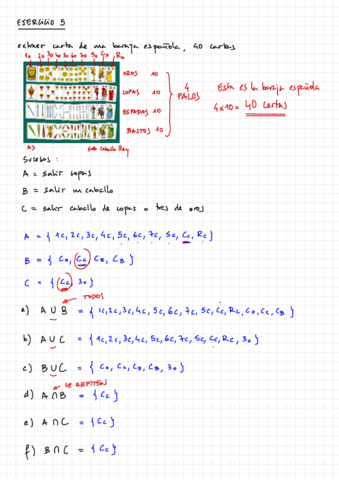 EJERCICIO 5
extraer carta de una baraja española, 40 cartas
1o 2o 3o 4o 5o 6o 7o So Co Ro
OROS 10
COPAS 10
ESPADAS 10
BASTOS 10
4 PALOS
Esta es la baraja española
4x10 = 40 cartas
AS Sota Caballo Rey
Sucesos :
A = salir copas
B = salir un caballo
C = salir caballo de copas o tres de oros
A = { 1c, 2c, 3c, 4c, 5c, 6c, 7c, Sc, Cc, Rc }
B = { Co, Cc, CE, CB }
C = { Cc, 3o }
TODOS
a) A ∪ B = { 1c, 2c, 3c, 4c, 5c, 6c, 7c, Sc, Cc, Rc, Co, CE, CB }
b) A ∪ C = { 1c, 2c, 3c, 4c, 5c, 6c, 7c, Sc, Cc, Rc, 3o }
c) B ∪ C = { Co, Cc, CE, CB, 3o }
SE REPITEN
d) A ∩ B = { Cc }
e) A ∩ C = { Cc }
f) B ∩ C = { Cc }